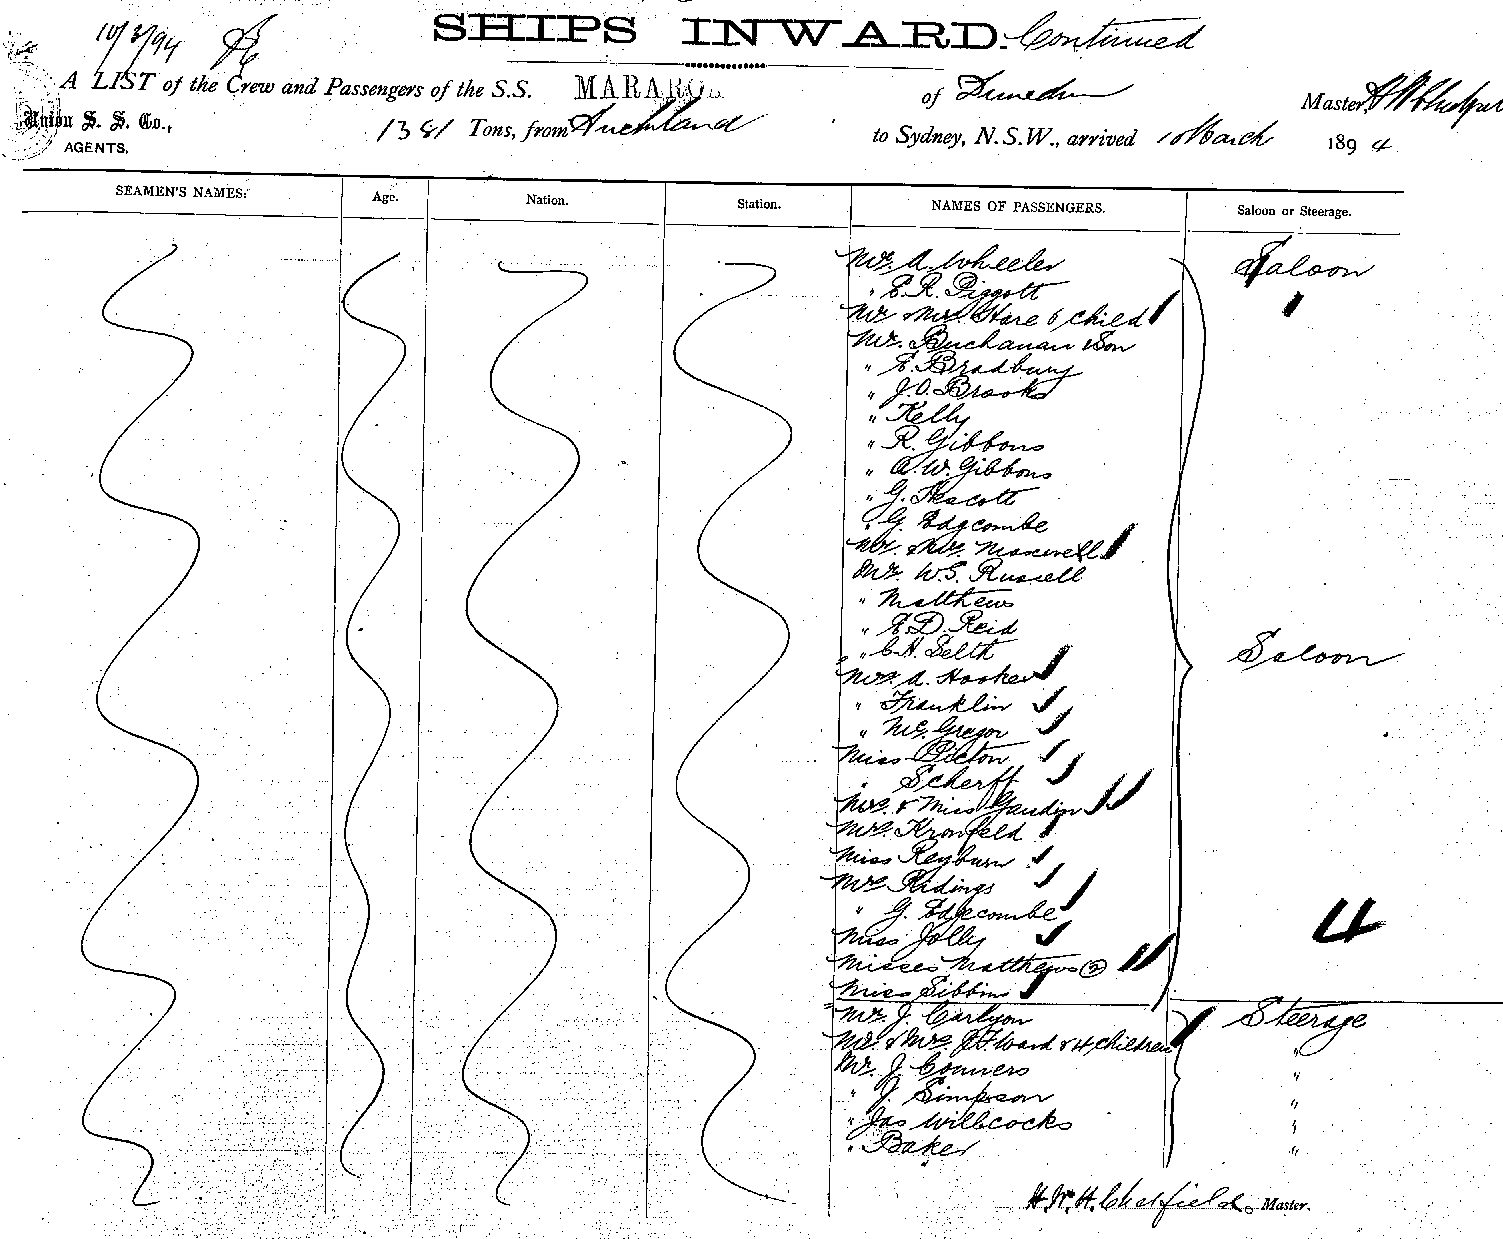 10/3/94
SHIPS INWARD. Continued
A LIST of the Crew and Passengers of the S.S. MARAROA of Dunedin Master
Union S. S. Co., 1381 Tons, from Auckland to Sydney, N.S.W., arrived 10 March 1894
AGENTS.
SEAMEN'S NAMES: Age. Nation. Station. NAMES OF PASSENGERS. Saloon or Steerage.
Mr. A. Wheeler Saloon
" E. R. Piggott "
Mr & Mrs. Hare & child
Mr. Buchanan & Son
" E. Bradbury
" J. O. Brooks
" Kelly
" R. Gibbons
" A. W. Gibbons
" G. Hescott
" G. Edgcombe
Mr. & Mrs. Maxwell
Mr. W. S. Russell
" Matthews
" E. D. Reid
" C. H. Selth Saloon
Mrs. A. Hooker
" Franklin
" McGregor
Miss Picton
" Scherff
Mrs. & Miss Gaudin
Mrs. Kronfeld
Miss Reyburn
Mrs Ridings
" G. Edgecombe 4
Miss Jolly
Misses Matthews (2)
Miss Gibbins
Mr. J. Carlyon Steerage
Mr. & Mrs. J. F. Ward & 4 children "
Mr. J. Conners "
" J. Simpson "
" Jas Willcocks "
" Baker "
H. W. H. Chatfield. Master.